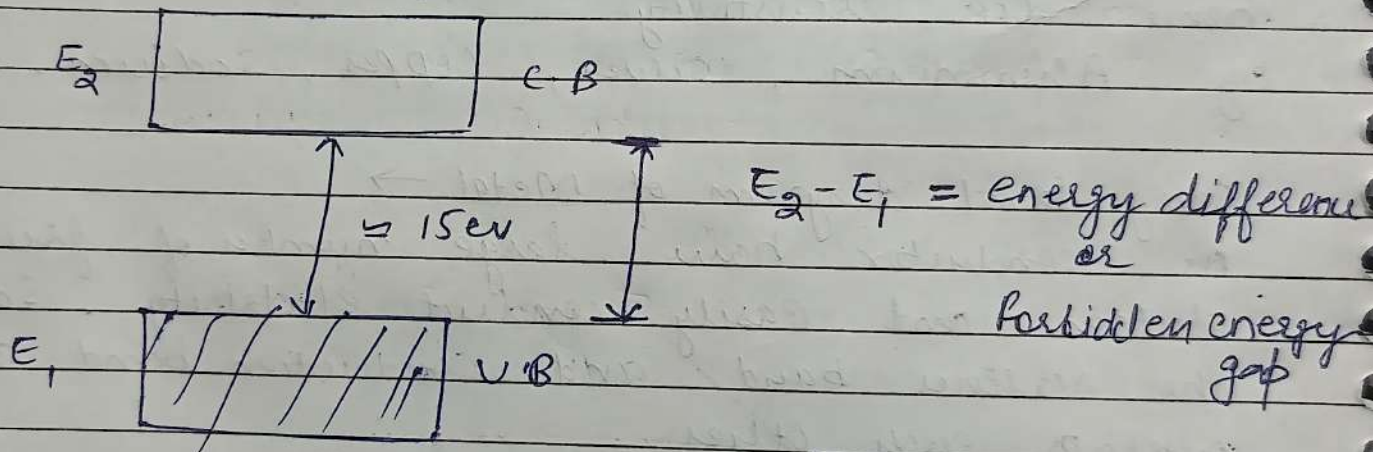 E2
C·B
≃ 15ev
E2 - E1 = energy difference
or
Forbidden energy
gap
E1
V·B